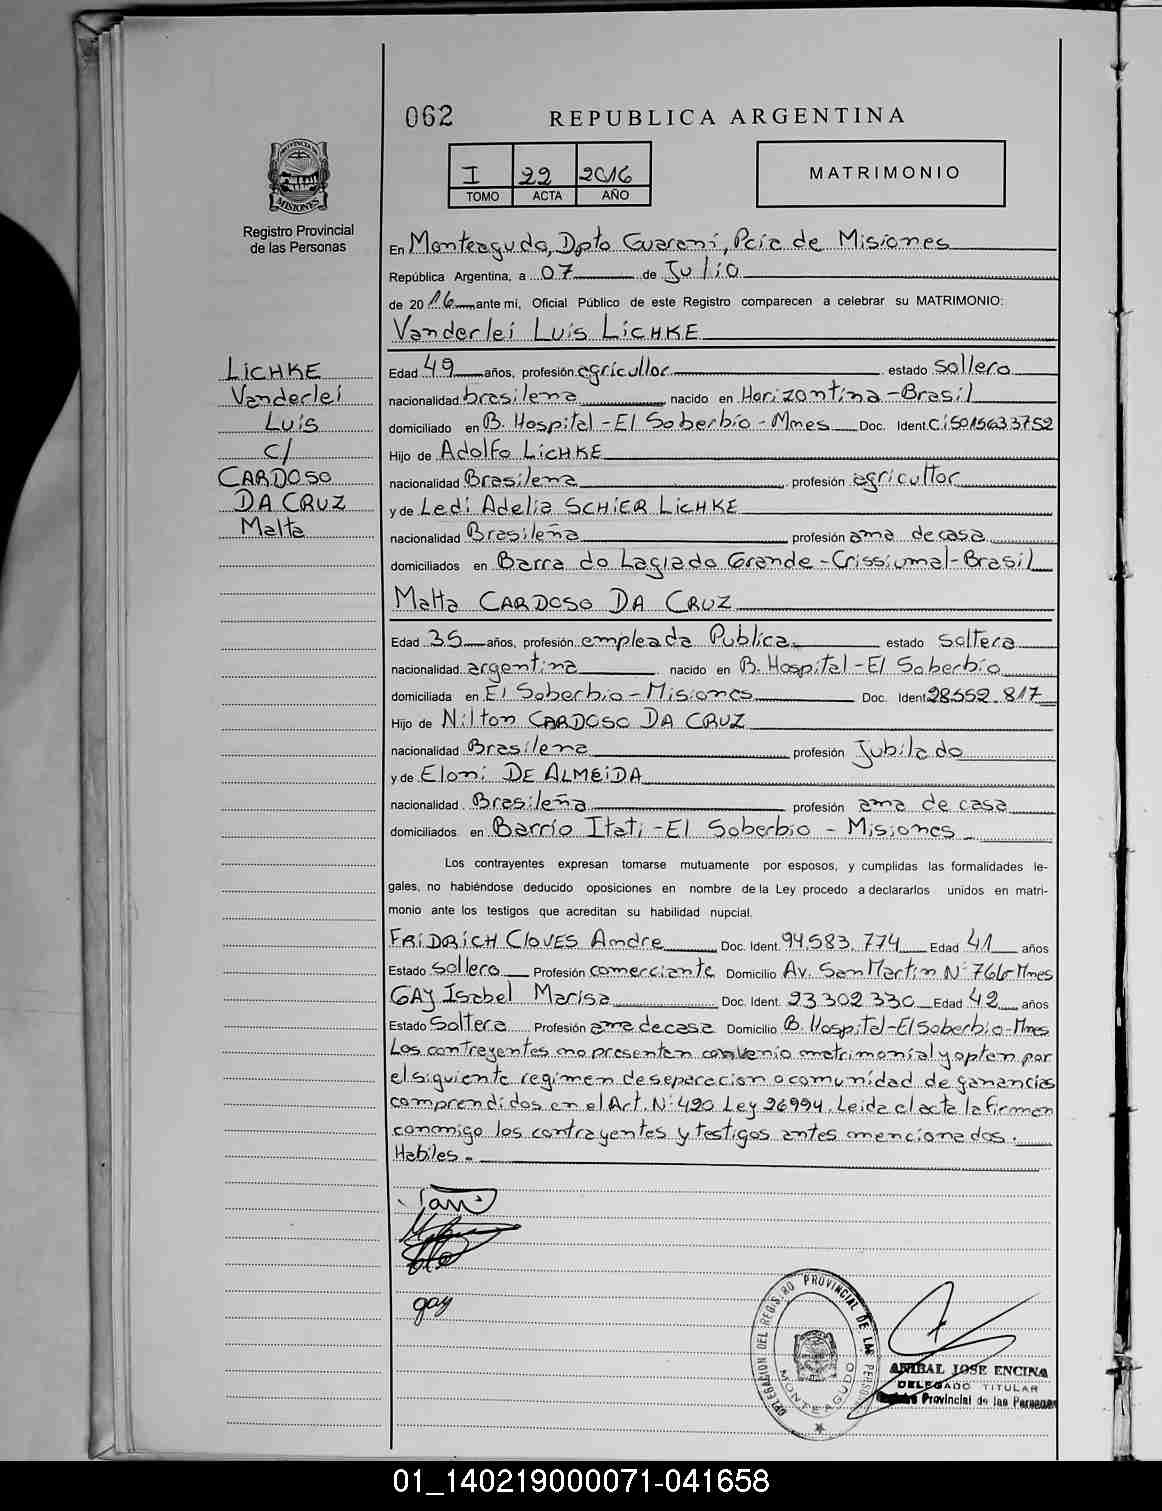 062
REPUBLICA ARGENTINA
I 22 2016
TOMO ACTA AÑO
MATRIMONIO
PROVINCIA DE
MISIONES
Registro Provincial
de las Personas
En Monteagudo, Dpto Guarani, Pcia de Misiones
República Argentina, a 07 de Julio
de 2016 ante mi, Oficial Público de este Registro comparecen a celebrar su MATRIMONIO:
Vanderlei Luis LiCHKE
LiCHKE
Vanderlei
Luis
c/
CARDOSO
DA CRUZ
Malta
Edad 49 años, profesión agricultor estado soltero
nacionalidad brasilena nacido en Horizontina-Brasil
domiciliado en B. Hospital-El Soberbio-Mnes Doc. Ident. Ci5015633752
Hijo de Adolfo LiCHKE
nacionalidad Brasilena profesión agricultor
y de Ledi Adelia SCHiER LiCHKE
nacionalidad Brasileña profesión ama de casa
domiciliados en Barra do Lagiado Grande-Crissiumal-Brasil
Malta CARDOSO DA CRUZ
Edad 35 años, profesión empleada Publica estado soltera
nacionalidad argentina nacido en B. Hospital-El Soberbio
domiciliada en El Soberbio-Misiones Doc. Ident 28.552.817
Hijo de Nilton CARDOSO DA CRUZ
nacionalidad Brasilena profesión Jubilado
y de Eloni DE ALMEiDA
nacionalidad Brasileña profesión ama de casa
domiciliados en Barrio Itati-El Soberbio-Misiones
Los contrayentes expresan tomarse mutuamente por esposos, y cumplidas las formalidades le-
gales, no habiéndose deducido oposiciones en nombre de la Ley procedo a declararlos unidos en matri-
monio ante los testigos que acreditan su habilidad nupcial.
FRiDRiCH CloVES Andre Doc. Ident. 94.583.774 Edad 41 años
Estado soltero Profesión comerciante Domicilio Av. San Martin N° 766-Mnes
GAY Isabel Marisa Doc. Ident. 23302330 Edad 42 años
Estado Soltera Profesión ama de casa Domicilio B. Hospital-El Soberbio-Mnes
Los contrayentes no presentan convenio matrimonial y optan por
el siguiente regimen de separacion o comunidad de ganancias
comprendidos en el Art. N° 420 Ley 26994. Leida el acta la firman
conmigo los contrayentes y testigos antes mencionados.
Habiles.-
gay
DELEGACION DEL REGISTRO PROVINCIAL DE LAS PERSONAS
MONTEAGUDO
ANIBAL JOSE ENCINA
DELEGADO TITULAR
Registro Provincial de las Personas
01_140219000071-041658